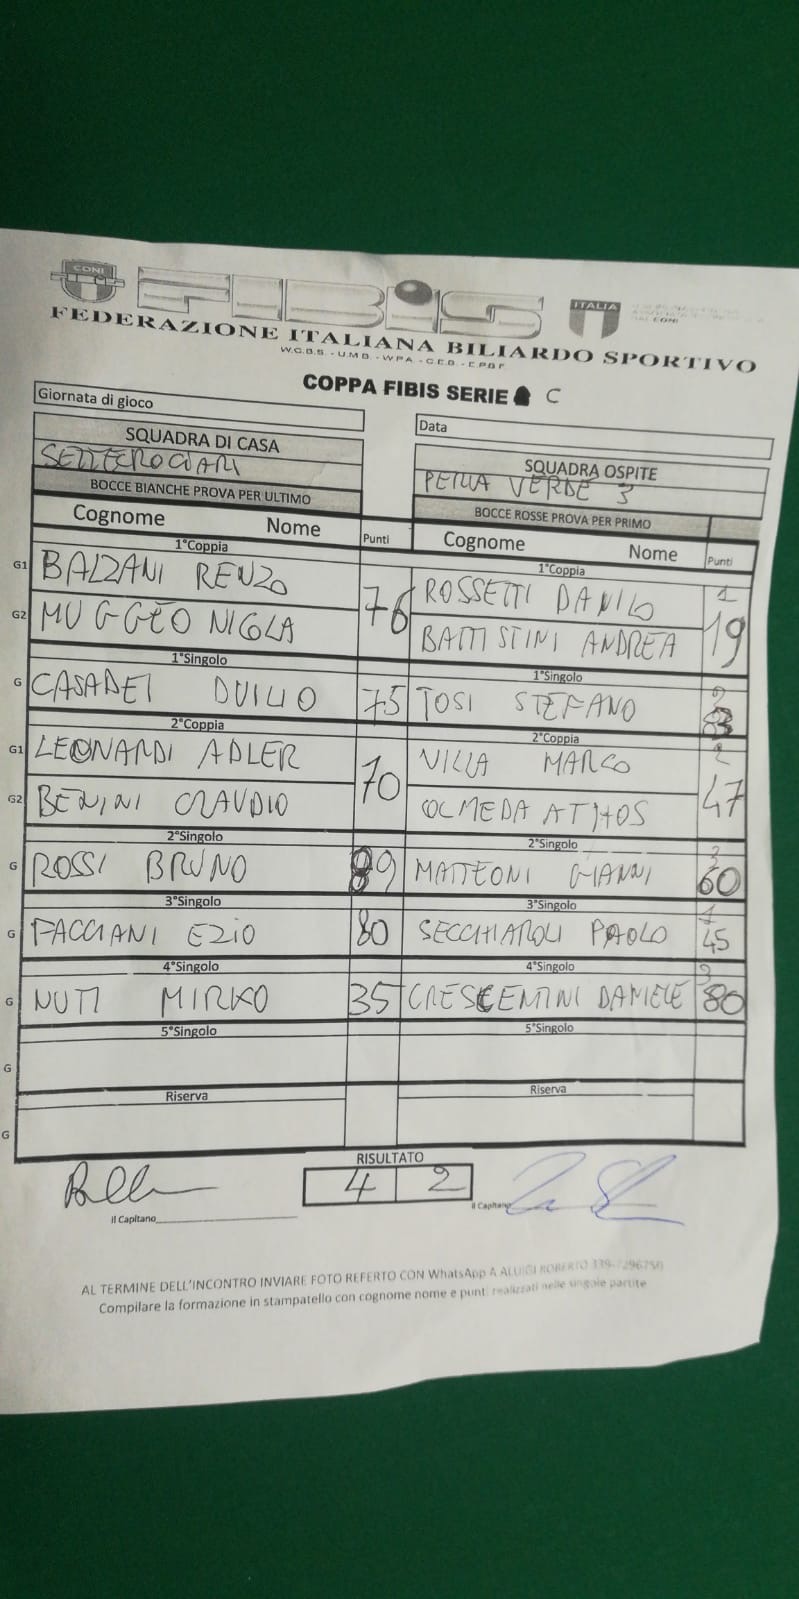 CONI
FIBIS
ITALIA
CONI
FEDERAZIONE ITALIANA BILIARDO SPORTIVO
W.C.B.S. - U.M.B. - W P A - C.E.B. - E.P.B.F.
COPPA FIBIS SERIE C
Giornata di gioco
Data
SQUADRA DI CASA
SQUADRA OSPITE
SETTECROCIARI
PERLA VERDE 3
BOCCE BIANCHE PROVA PER ULTIMO
BOCCE ROSSE PROVA PER PRIMO
Cognome Nome Punti Cognome Nome Punti
1°Coppia 1°Coppia
G1 BALZANI RENZO 76 ROSSETTI DANILO 1 19
G2 MUGGEO NICOLA BATTISTINI ANDREA
1°Singolo 1°Singolo
G CASADEI DUILIO 75 TOSI STEFANO 2
2°Coppia 2°Coppia
G1 LEONARDI ADLER 70 VILLA MARCO 2 47
G2 BENINI CLAUDIO OLMEDA ATHOS
2°Singolo 2°Singolo
G ROSSI BRUNO 89 MATTEONI GIANNI 3 60
3°Singolo 3°Singolo
G FACCIANI EZIO 80 SECCHIAROLI PAOLO 1 45
4°Singolo 4°Singolo
G NUTI MIRKO 35 CRESCENTINI DANIELE 3 80
5°Singolo 5°Singolo
G
Riserva Riserva
G
RISULTATO
4 2
Il Capitano Il Capitano
AL TERMINE DELL'INCONTRO INVIARE FOTO REFERTO CON WhatsApp A ALUIGI ROBERTO
Compilare la formazione in stampatello con cognome nome e punti realizzati nelle singole partite